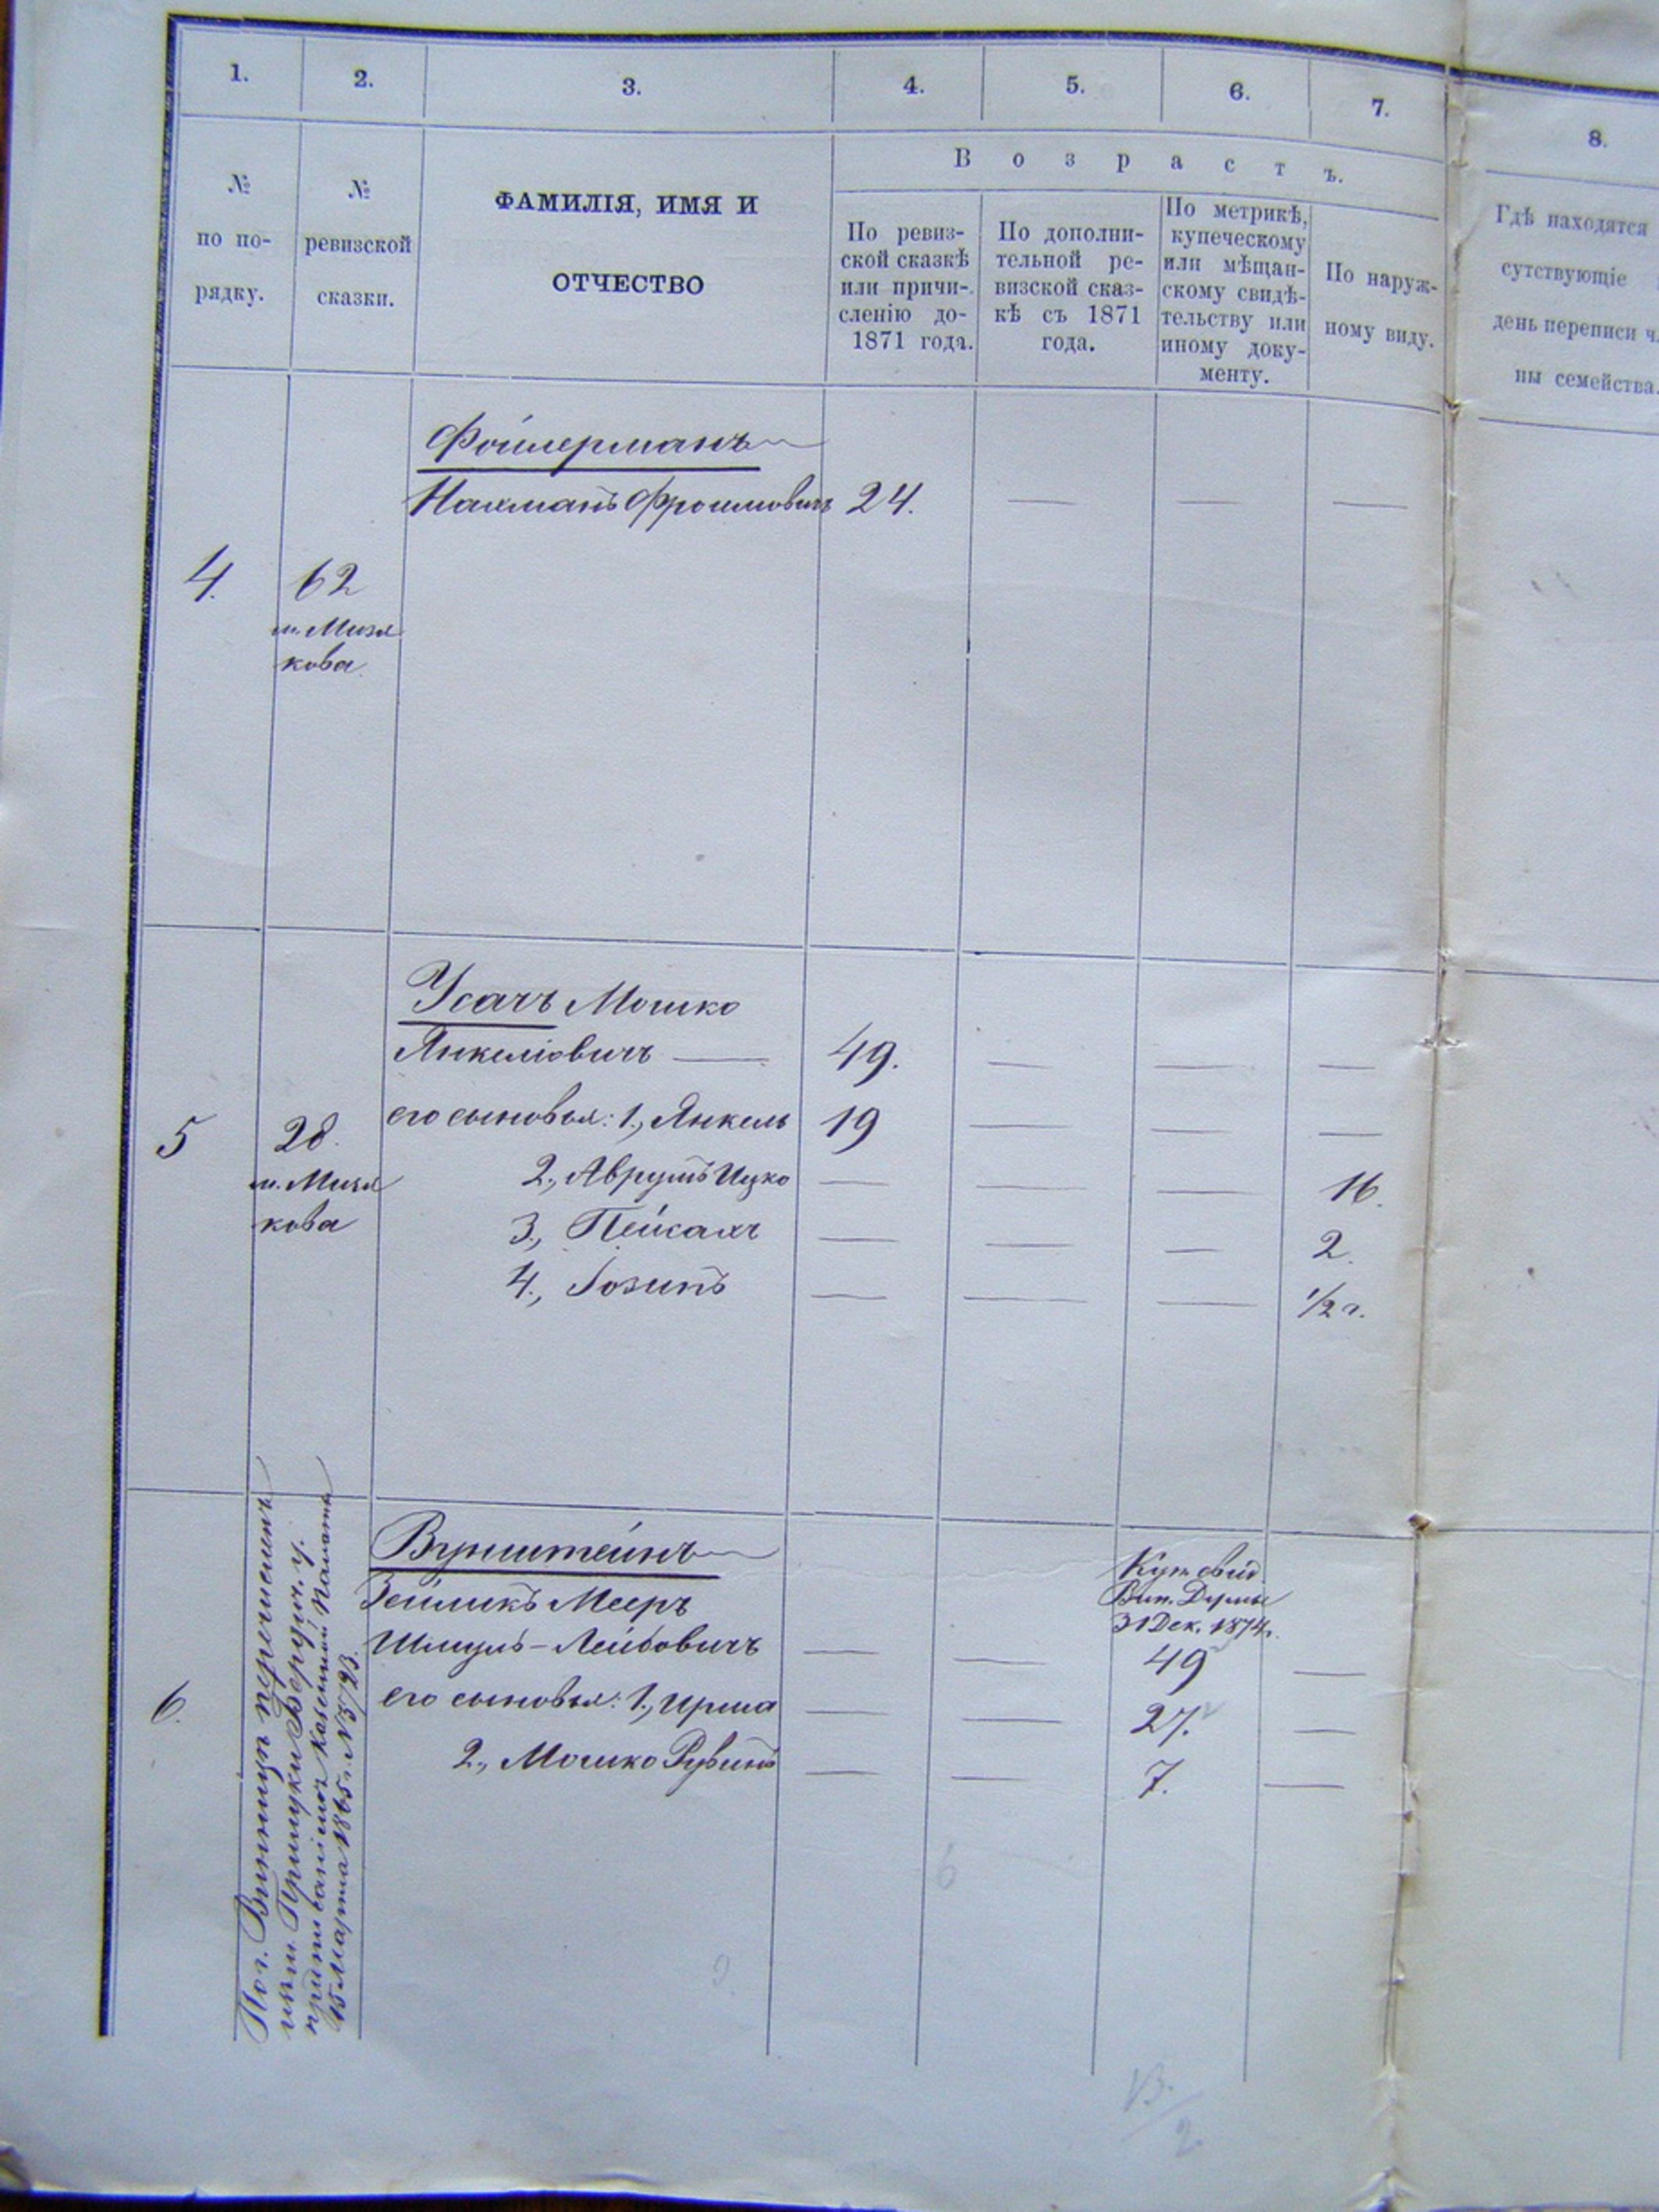 1.
2.
3.
4.
5.
6.
7.
8.
№
по по-
рядку.
№
ревизской
сказки.
ФАМИЛІЯ, ИМЯ И
ОТЧЕСТВО
Возрастъ.
По ревиз-
ской сказкѣ
или причи-
сленію до
1871 года.
По дополни-
тельной ре-
визской сказ-
кѣ съ 1871
года.
По метрикѣ,
купеческому
или мѣщан-
скому свидѣ-
тельству или
иному доку-
менту.
По наруж-
ному виду.
Гдѣ находятся
сутствующіе
день переписи
ны семейства.
Фойлерманъ
Нахманъ Фроимовичъ 24. — — —
4. 62
м. Мизя
кова
Усачъ Мошко
Янкеліовичъ — 49. — — —
5 28.
м. Мизя
кова
его сыновья: 1., Янкель 19 — — —
2., Аврумъ Ицко — — — 16.
3., Пейсахъ — — — 2.
4., Іозипъ — — — 1/2 г.
6.
По г. Винница перечислен
изъ м. Прилуки
Казенной Палаты
15 Марта 1865 г. № 3793.
Вунштейнъ
Зейликъ Мееръ
Шмуль-Лейбовичъ — — 49 —
его сыновья: 1., Ирша — — 27. —
2., Мошко Рувинъ — — 7. —
Вин. Думы
31 Дек. 1874 г.
6
13/2